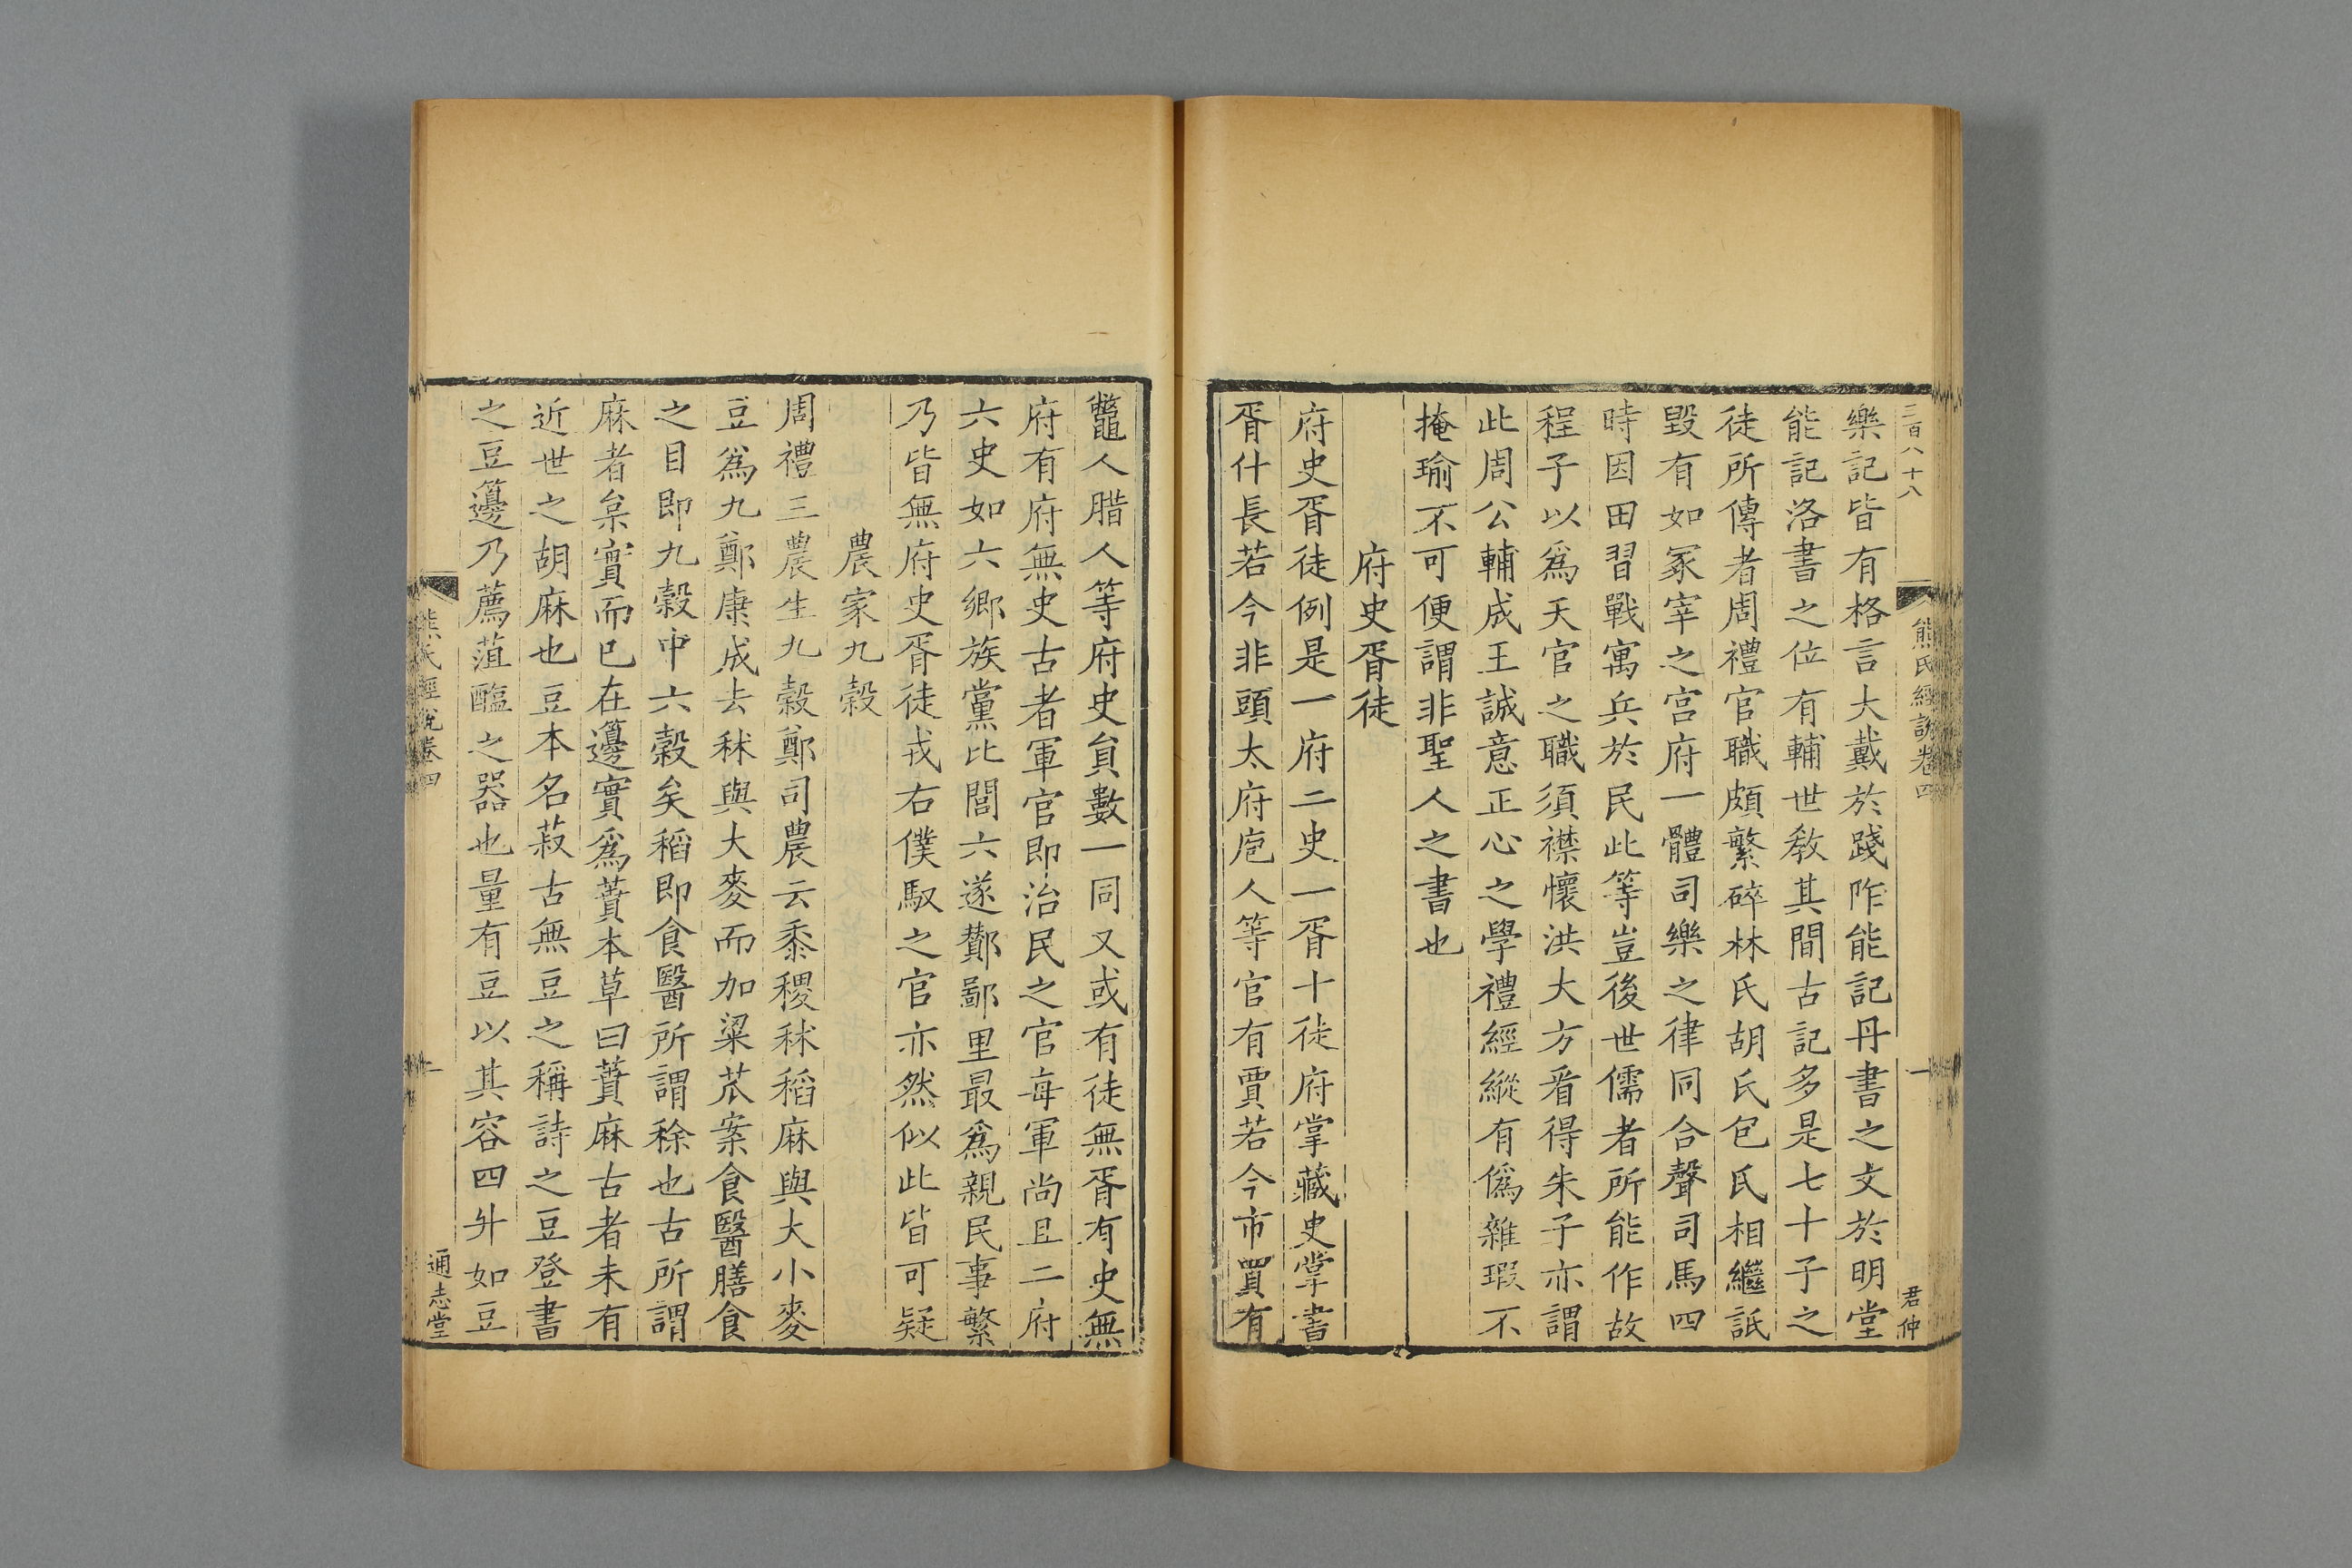 三百八十八
熊氏經說卷四
一
君仲
樂記皆有格言大戴於踐阼能記丹書之文於明堂
能記洛書之位有輔世敎其間古記多是七十子之
徒所傳者周禮官職頗繁碎林氏胡氏包氏相繼詆
毀有如冢宰之宫府一體司樂之律同合聲司馬四
時因田習戰寓兵於民此等豈後世儒者所能作故
程子以爲天官之職須襟懷洪大方㸔得朱子亦謂
此周公輔成王誠意正心之學禮經縱有僞雜瑕不
掩瑜不可便謂非聖人之書也
府史胥徒
府史胥徒例是一府二史一胥十徒府掌藏史掌書
胥什長若今非頭太府庖人等官有賈若今市買有
鼈人腊人等府史貟數一同又或有徒無胥有史無
府有府無史古者軍官即治民之官每軍尚且二府
六史如六鄉族黨比閭六遂酇鄙里最爲親民事繁
乃皆無府史胥徒戎右僕馭之官亦然似此皆可疑
農家九榖
周禮三農生九榖鄭司農云黍稷秫稻麻與大小麥
豆爲九鄭康成去秫與大麥而加粱苽案食醫膳食
之目即九榖中六榖矣稻即食醫所謂稌也古所謂
麻者枲實而已在籩實爲蕡本草曰蕡麻古者未有
近世之胡麻也豆本名菽古無豆之稱詩之豆登書
之豆籩乃薦菹醢之器也量有豆以其容四升如豆
熊氏經說卷四
一
通志堂